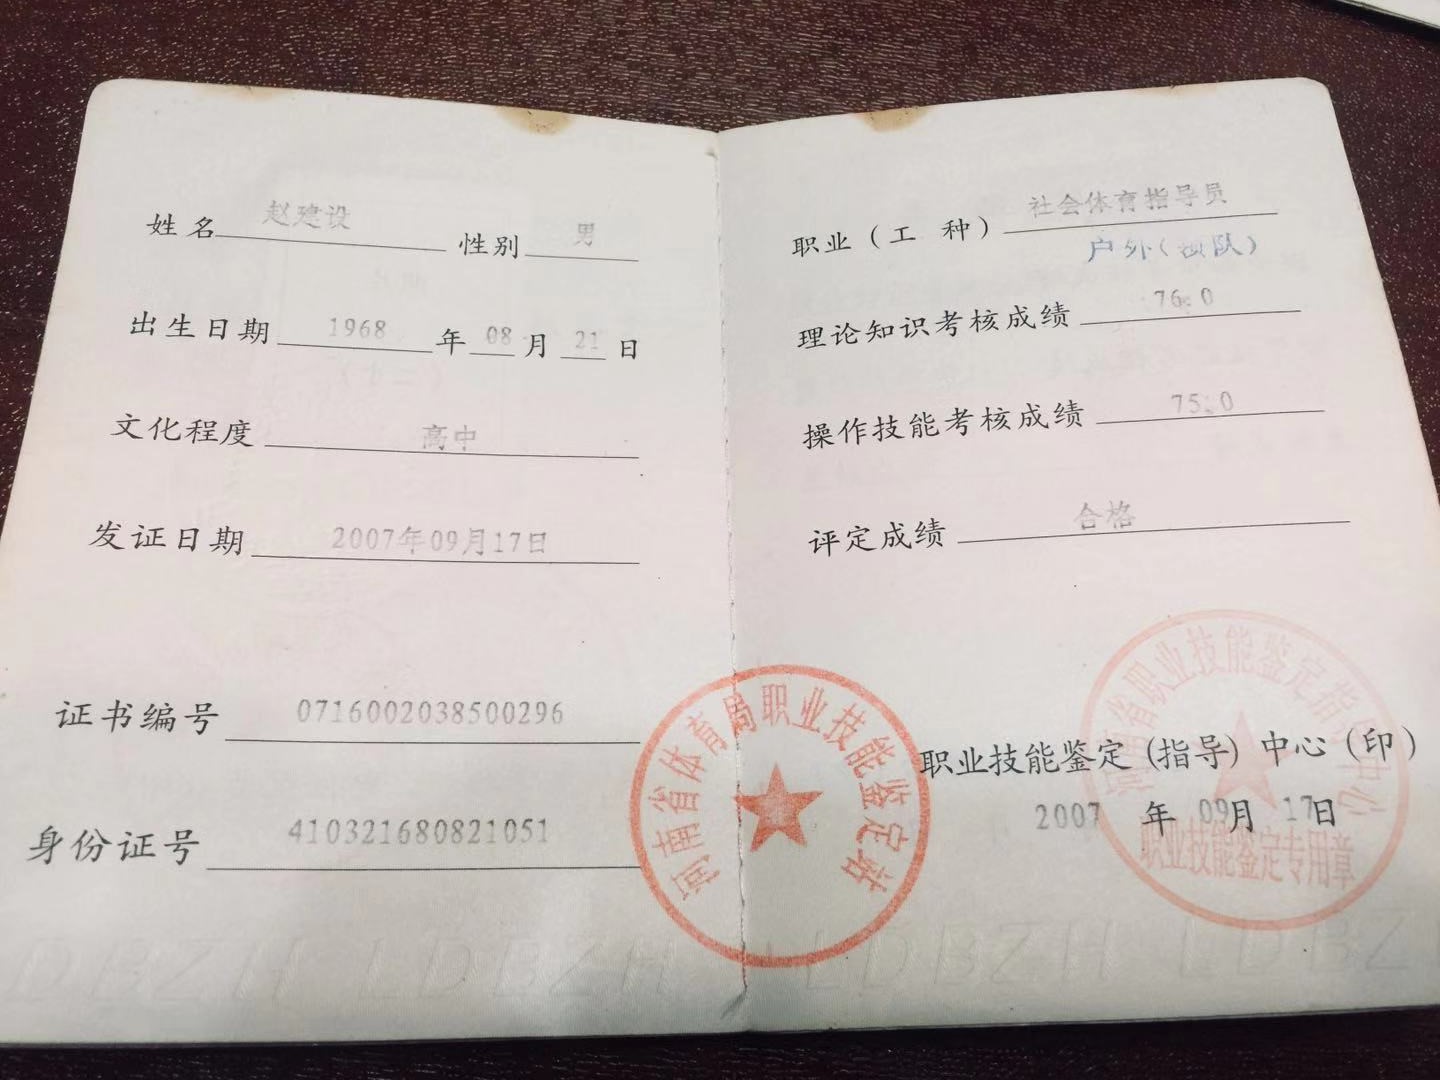 姓名 赵建设 性别 男
出生日期 1968 年 08 月 21 日
文化程度 高中
发证日期 2007年09月17日
证书编号 0716002038500296
身份证号 410321680821051
河南省体育局职业技能鉴定站
职业（工 种） 社会体育指导员
户外（领队）
理论知识考核成绩 76.0
操作技能考核成绩 75.0
评定成绩 合格
职业技能鉴定（指导）中心（印）
2007 年 09月 17日
河南省职业技能鉴定指导中心
职业技能鉴定专用章
LDBZH LDBZH LDBZH LDBZ